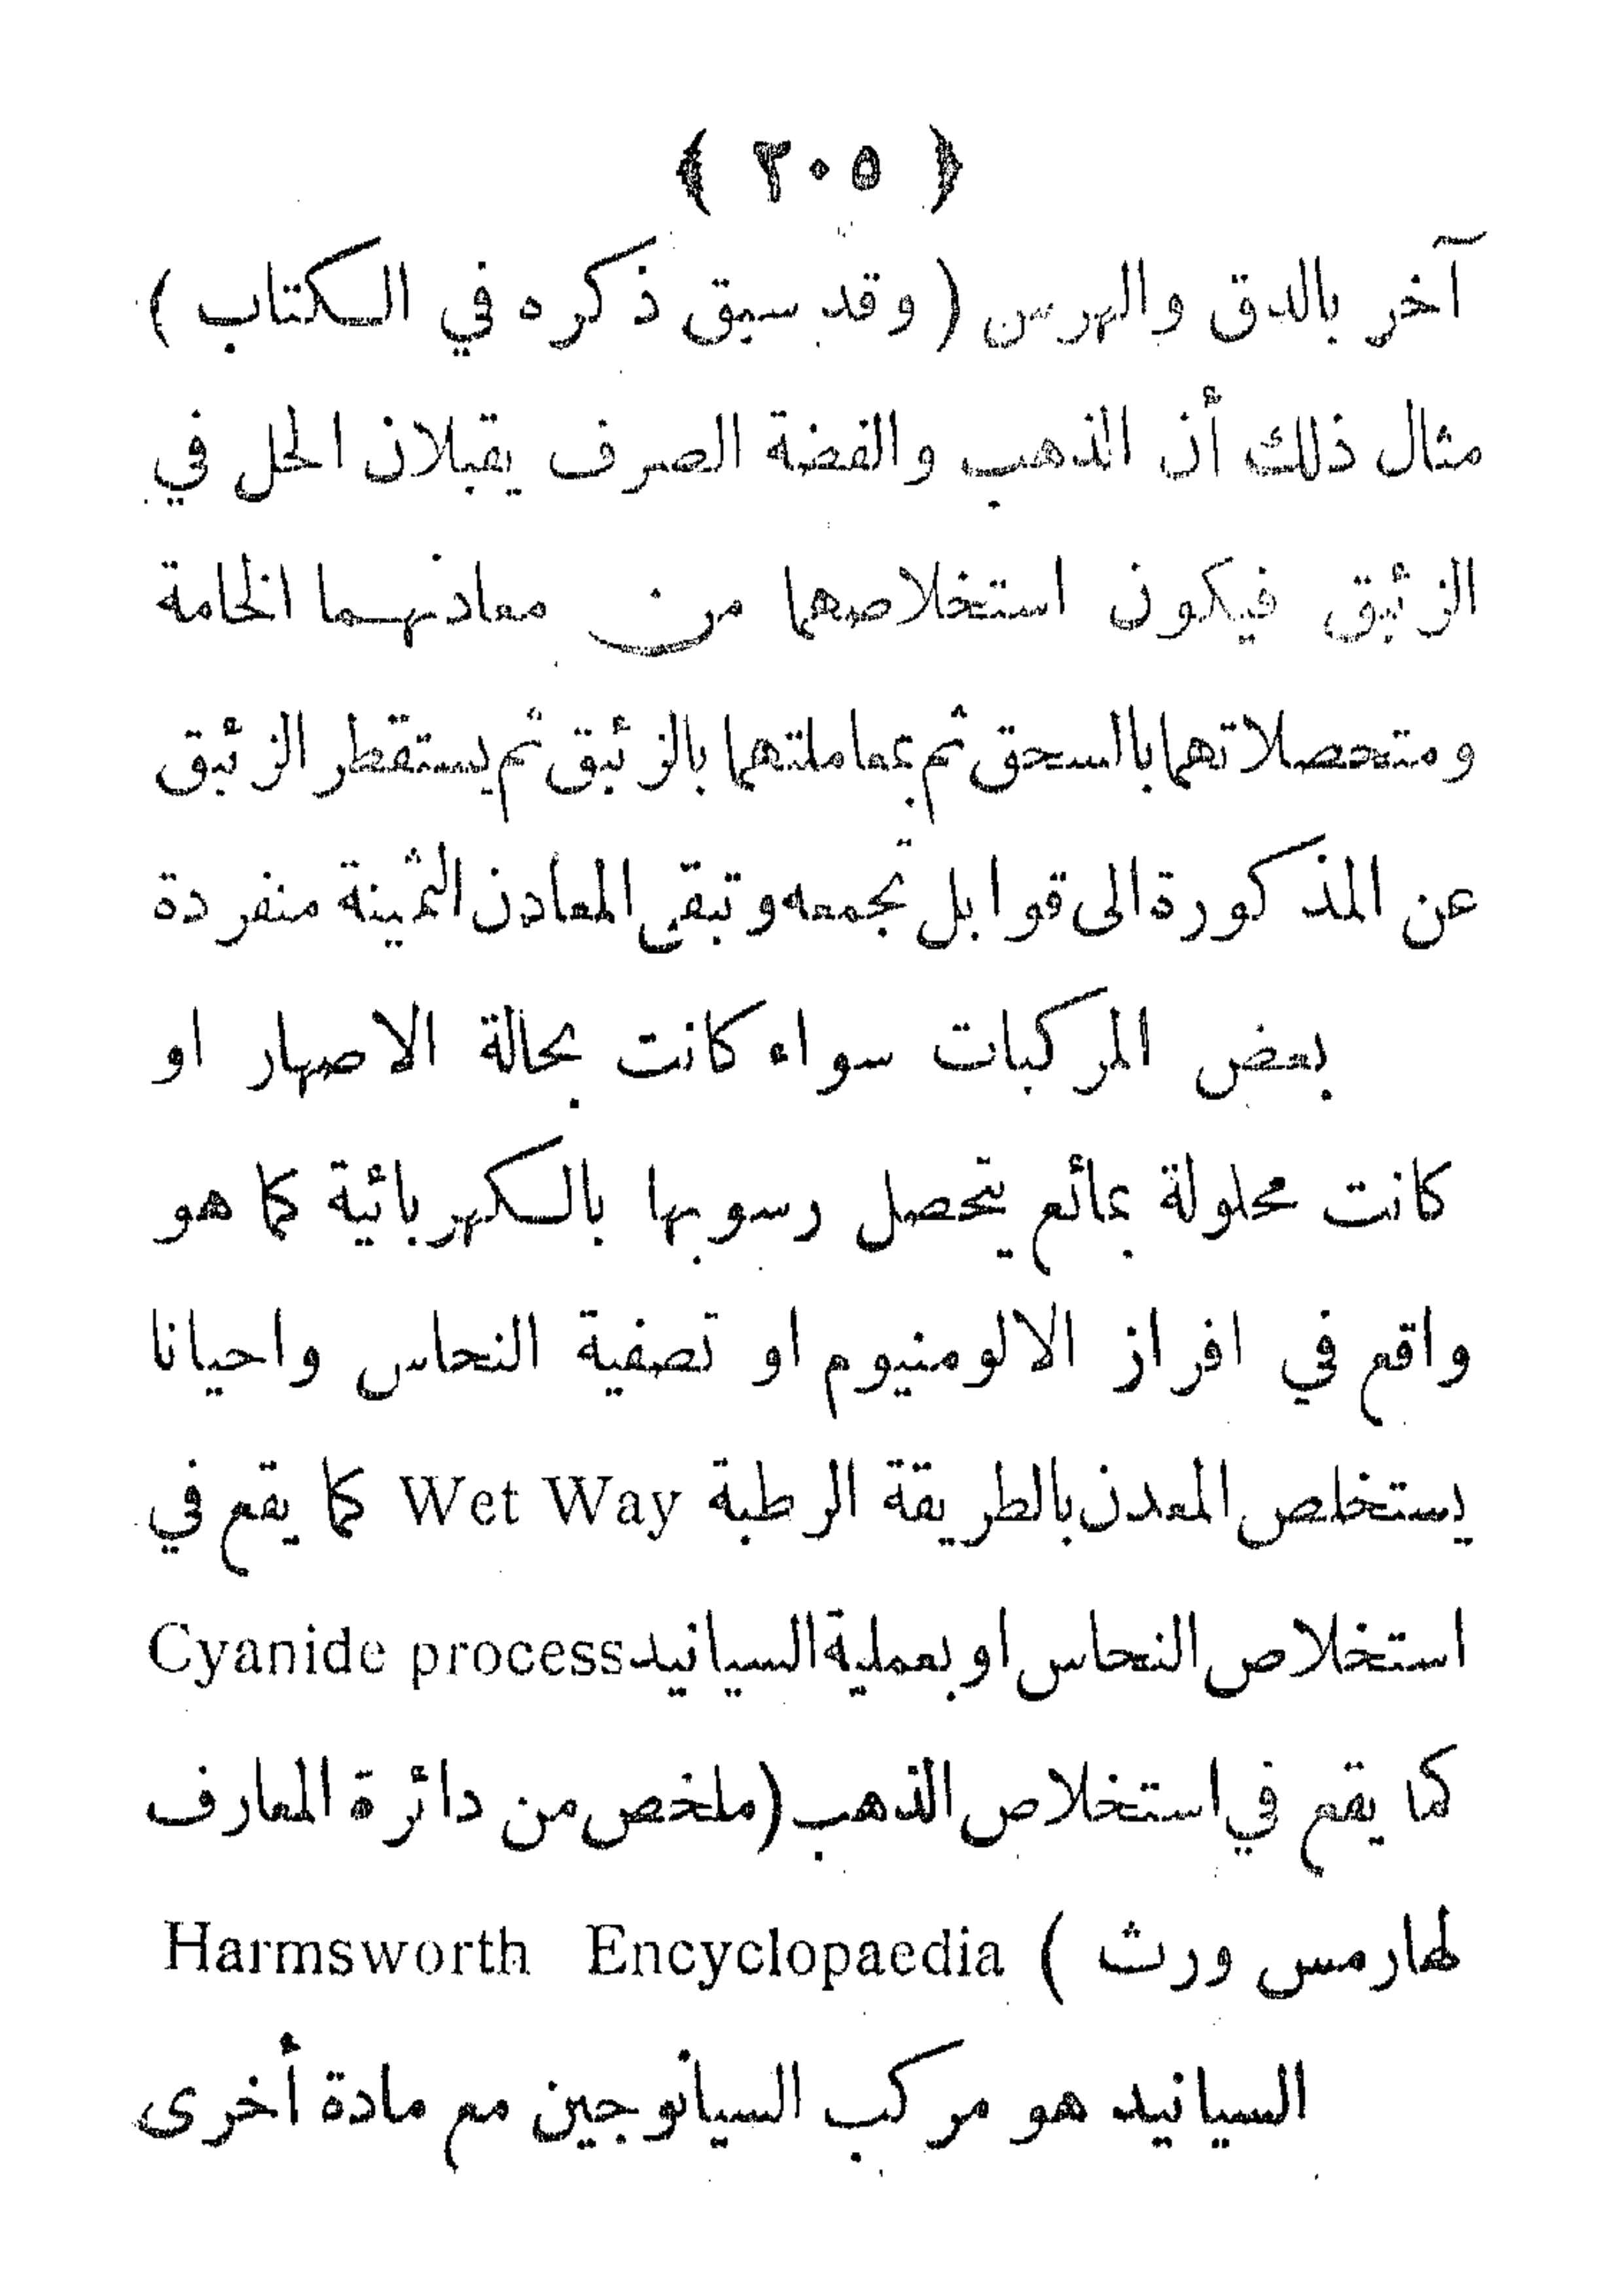 ﴿ ٢٠٥ ﴾
آخر بالدق والهرس ( وقد سبق ذكره في الكتاب )
مثال ذلك أن الذهب والفضة الصرف يقبلان الحل في
الزئبق فيكون استخلاصهما من معادنهما الخامة
ومتحصلاتهما بالسحق ثم بمعاملتهما بالزئبق ثم يستقطر الزئبق
عن المذكورة الى قوابل تجمعه وتبقى المعادن الثمينة منفردة
بعض المركبات سواء كانت بحالة الاصهار او
كانت محلولة بمائع يتحصل رسوبها بالكهربائية كما هو
واقع في افراز الالومنيوم او تصفية النحاس واحيانا
يستخلص المعدن بالطريقة الرطبة Wet Way كما يقع في
استخلاص النحاس او بعملية السيانيد Cyanide process
كما يقع في استخلاص الذهب (ملخص من دائرة المعارف
لهارمس ورث ) Harmsworth Encyclopaedia
السيانيد هو مركب السيانوجين مع مادة أخرى